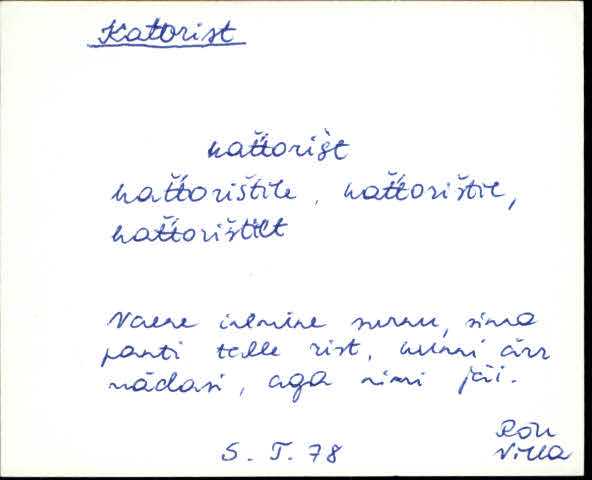 Katorist
kat̆t̆orišt
kat̆t̆orištile, kat̆t̆orištil,
kat̆t̆orištilt
Vaene inemine surnu, sinna
panti talle rist, kunni ärr
mädasi, aga nimi jäi.
Rõu
Villa
5. I. 78